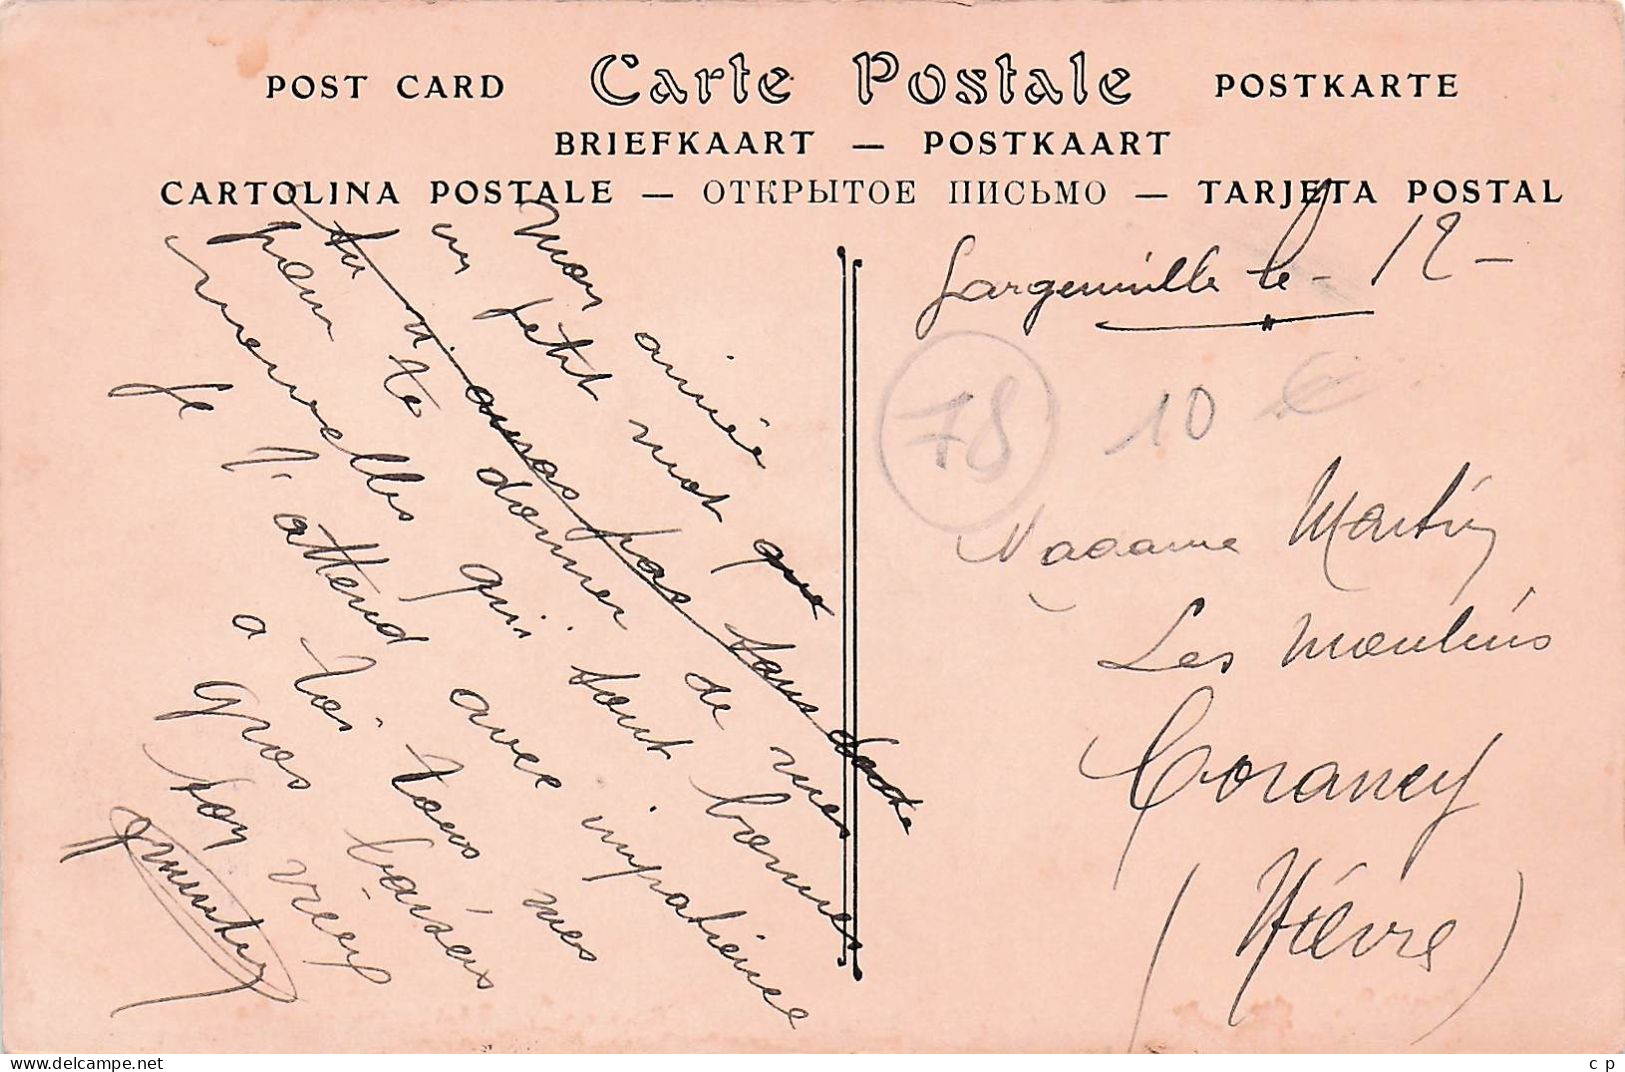 POST CARD Carte Postale POSTKARTE
BRIEFKAART — POSTKAART
CARTOLINA POSTALE — ОТКРЫТОЕ ПИСЬМО — TARJETA POSTAL
Gargenville le - 12 -
78 10 €
Madame Martin
Les Moulins
Corancy
(Nièvre)
Mon aimée
un petit mot que
tu n'auras pas sans doute
pour te donner de mes
nouvelles qui sont bonnes
Je t'attend avec impatience
a toi tous mes
gros baisers
ton vieux
www.delcampe.net
c p